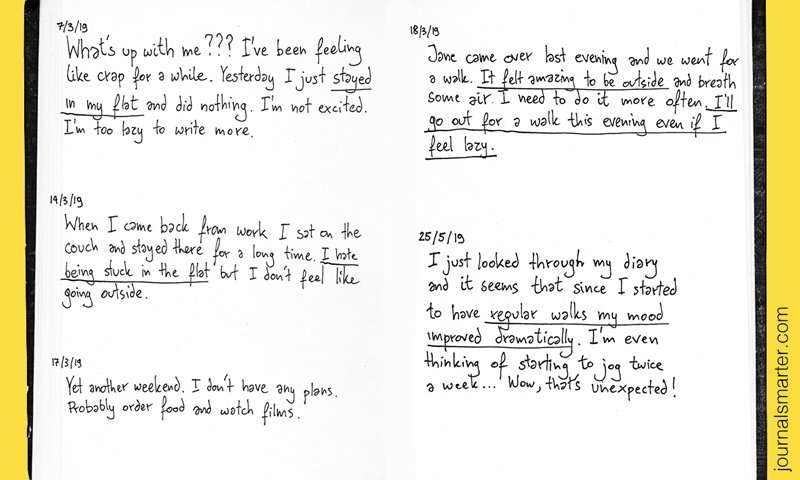 7/3/19
What's up with me??? I've been feeling
like crap for a while. Yesterday I just stayed
in my flat and did nothing. I'm not excited.
I'm too lazy to write more.
14/3/19
When I came back from work I sat on the
couch and stayed there for a long time. I hate
being stuck in the flat but I don't feel like
going outside.
17/3/19
Yet another weekend. I don't have any plans.
Probably order food and watch films.
18/3/19
Jane came over last evening and we went for
a walk. It felt amazing to be outside and breath
some air. I need to do it more often. I'll
go out for a walk this evening even if I
feel lazy.
25/5/19
I just looked through my diary
and it seems that since I started
to have regular walks my mood
improved dramatically. I'm even
thinking of starting to jog twice
a week... Wow, that's unexpected!
journalsmarter.com